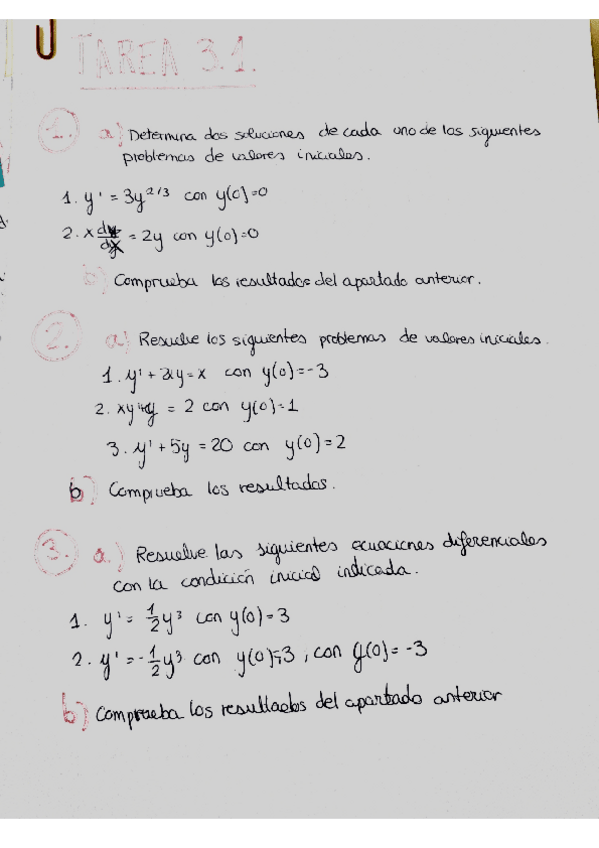 TAREA 3.1.
1. a) Determina dos soluciones de cada uno de los siguientes
problemas de valores iniciales.
1. y' = 3y^2/3 con y(0)=0
2. x dy/dx = 2y con y(0)=0
b) Comprueba los resultados del apartado anterior.
2. a) Resuelve los siguientes problemas de valores iniciales.
1. y' + 2y = x con y(0)=-3
2. = 2 con y(0)=1
3. y' + 5y = 20 con y(0)=2
b) Comprueba los resultados.
3. a.) Resuelve las siguientes ecuaciones diferenciales
con la condición inicial indicada.
1. y' = 1/2 y³ con y(0)=3
2. y' = -1/2 y³ con y(0)=3, con y(0)= -3
b) Comprueba los resultados del apartado anterior